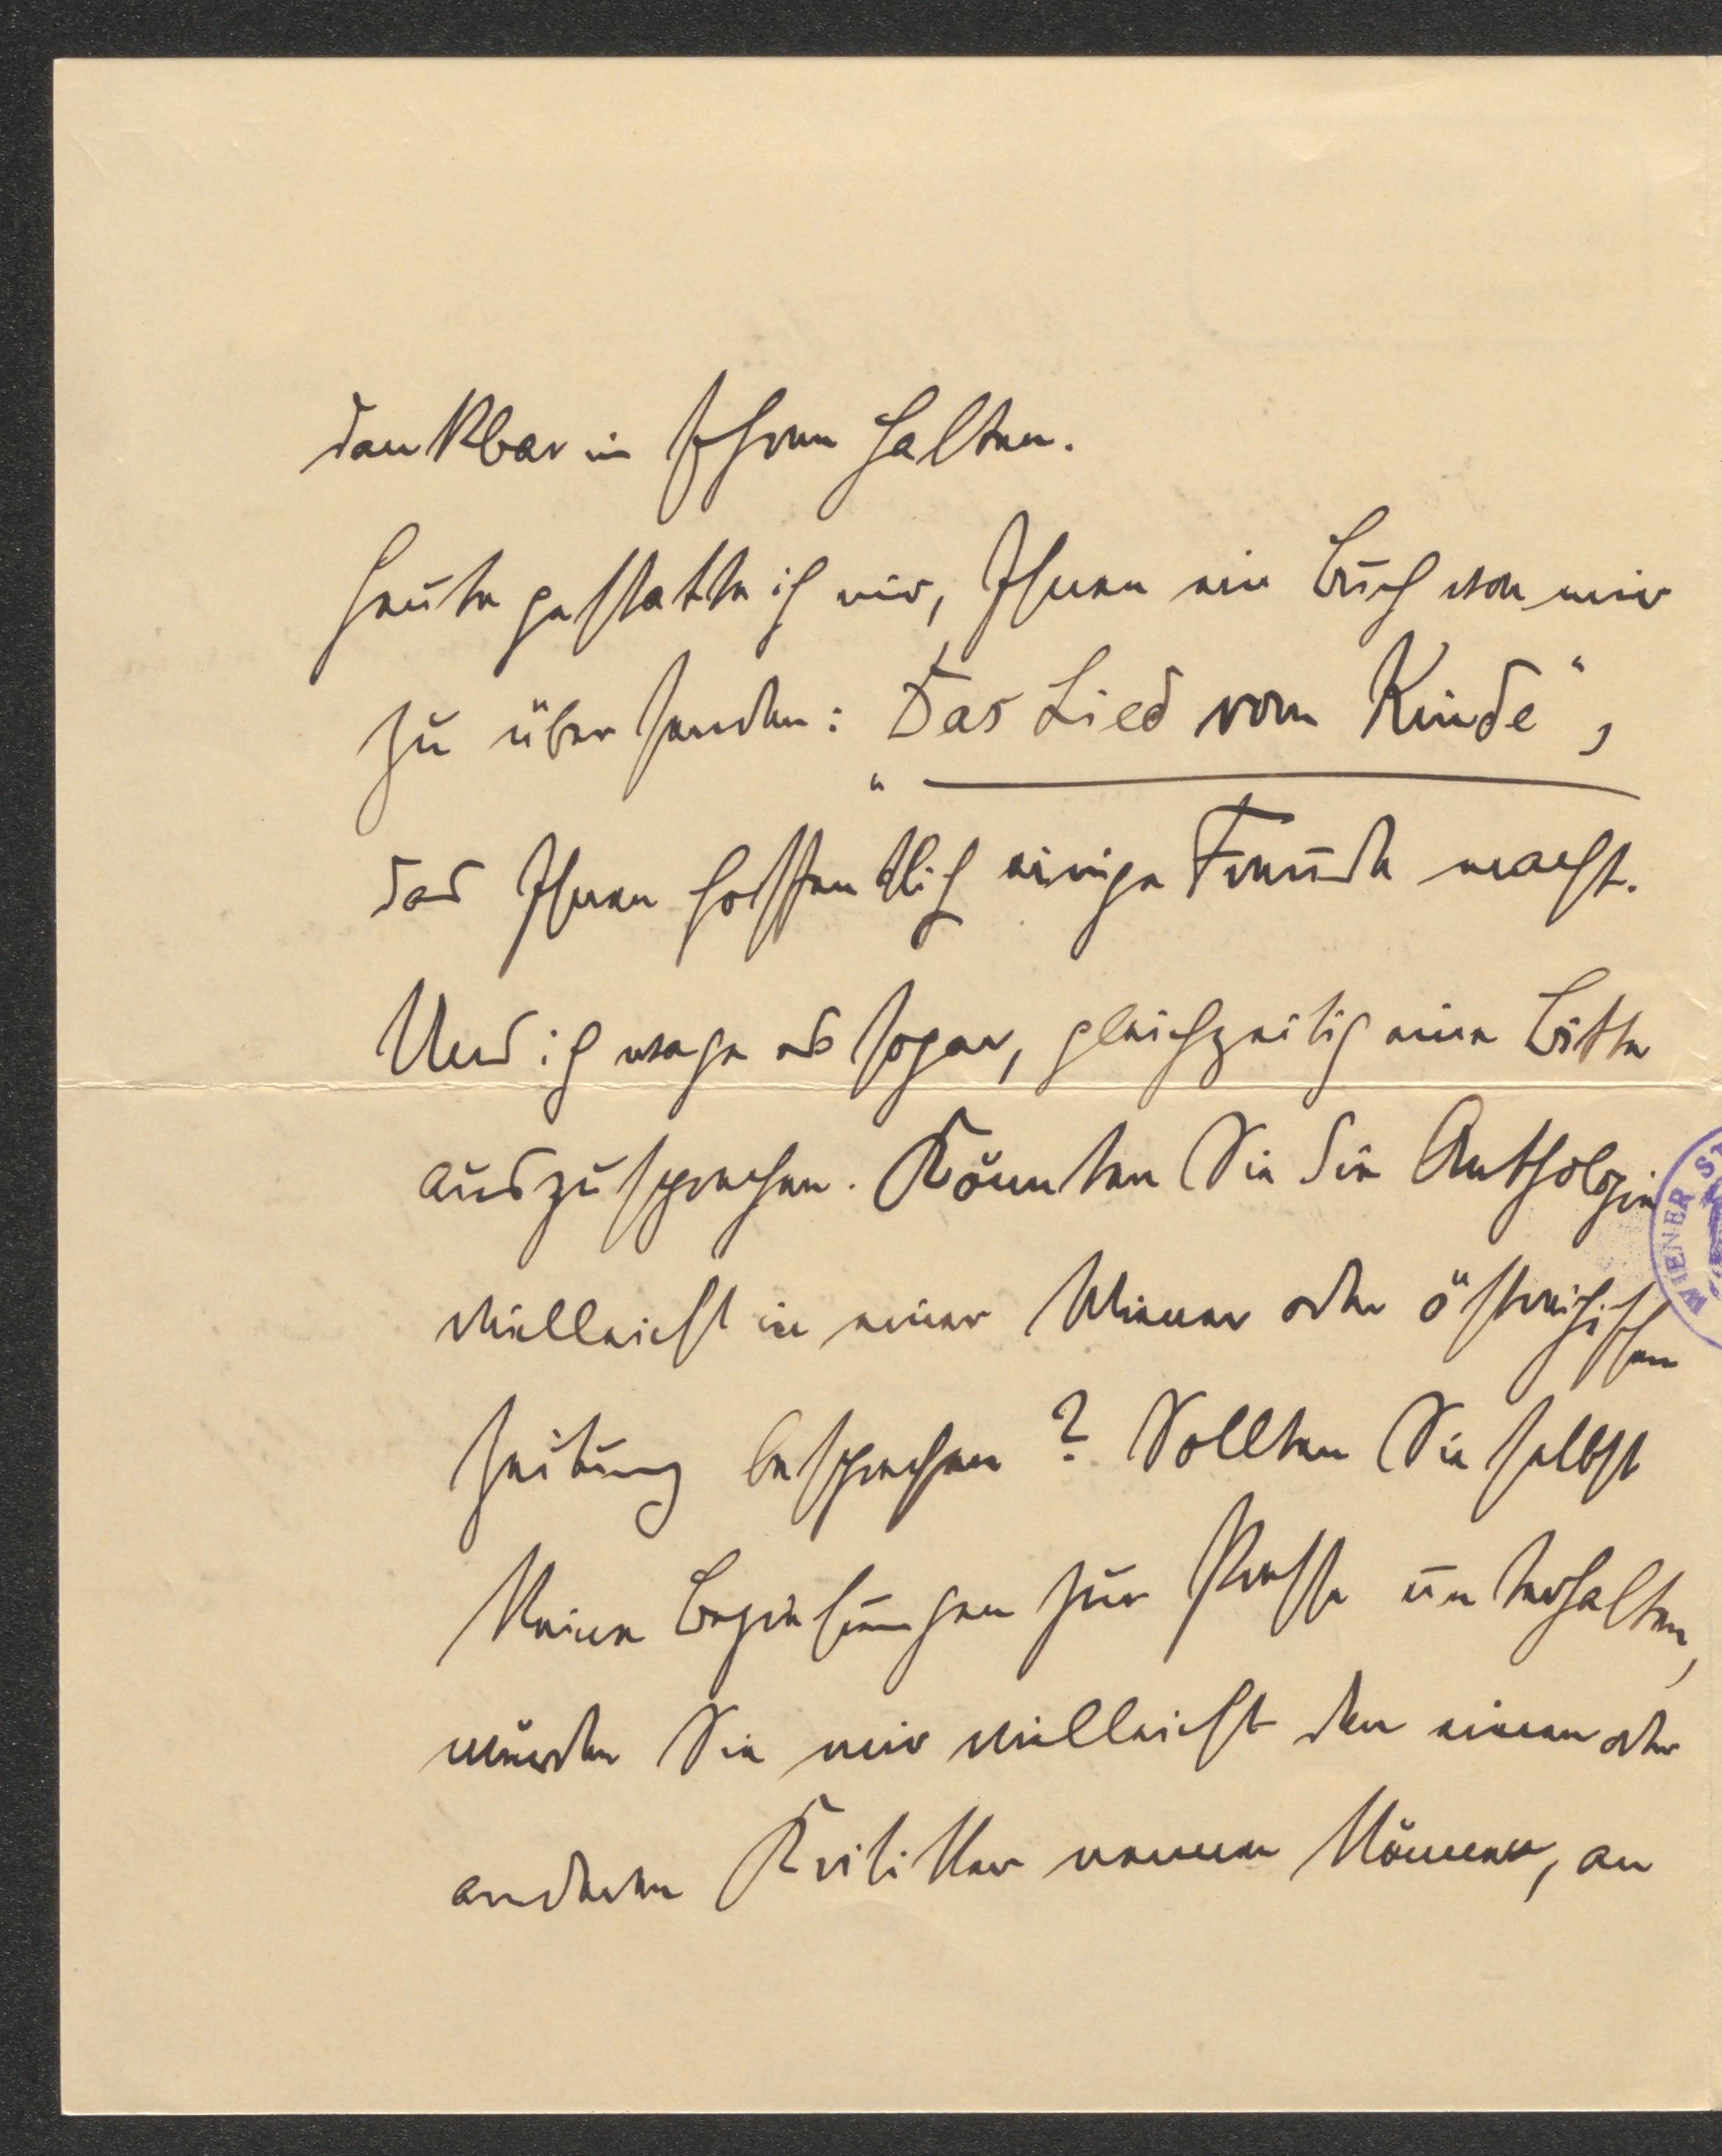 dankbar in Ehren halten.
Heute gestatte ich mir, Ihnen ein Buch von mir
zu übersenden: „Das Lied vom Kinde“,
das Ihnen hoffentlich einige Freude macht.
Und ich wage es sogar, gleichzeitig eine Bitte
auszusprechen. Könnten Sie die Anthologie
vielleicht in einer Wiener oder östreichischen
Zeitung besprechen? Sollten Sie selbst
keine Beziehungen zur Presse unterhalten,
würden Sie mir vielleicht den einen oder
anderen Kritiker nennen können, an
WIENER ST